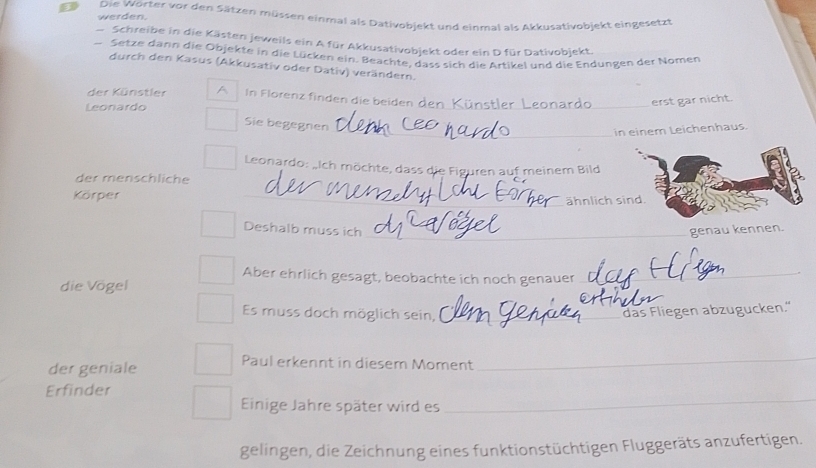 3 Die Wörter vor den Sätzen müssen einmal als Dativobjekt und einmal als Akkusativobjekt eingesetzt
werden.
– Schreibe in die Kästen jeweils ein A für Akkusativobjekt oder ein D für Dativobjekt.
– Setze dann die Objekte in die Lücken ein. Beachte, dass sich die Artikel und die Endungen der Nomen
durch den Kasus (Akkusativ oder Dativ) verändern.
der Künstler
Leonardo
A In Florenz finden die beiden den Künstler Leonardo erst gar nicht.
Sie begegnen Leonardo in einem Leichenhaus.
der menschliche
Körper
Leonardo: „Ich möchte, dass die Figuren auf meinem Bild
der ähnlich sind.
Deshalb muss ich die Vögel genau kennen.
die Vögel
Aber ehrlich gesagt, beobachte ich noch genauer das
Es muss doch möglich sein, dem das Fliegen abzugucken.“
der geniale
Erfinder
Paul erkennt in diesem Moment
Einige Jahre später wird es
gelingen, die Zeichnung eines funktionstüchtigen Fluggeräts anzufertigen.